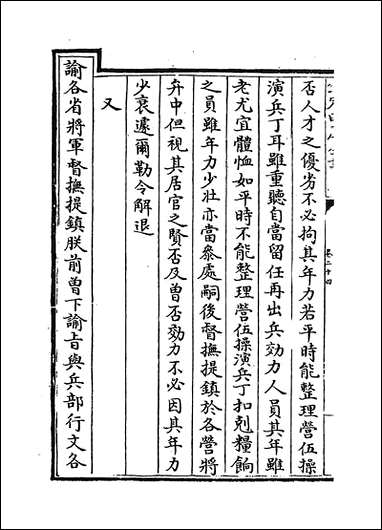 否人才之優劣不必拘其年力若平時能整理營伍操
演兵丁耳雖重聽自當留任再出兵効力人員其年雖
老尤宜體恤如平時不能整理營伍操演兵丁扣剋糧餉
之員雖年力少壯亦當叅處嗣後督撫提鎮於各營將
弁中但視其居官之賢否及曾否効力不必因其年力
少衰遽爾勒令解退
又
諭各省將軍督撫提鎮朕前曾下諭㫖與兵部行文各